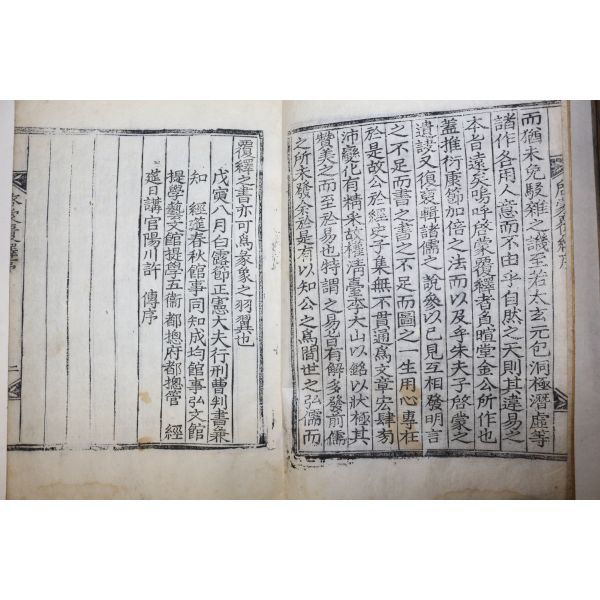 啓蒙覆繹序
而猶未免駁雜之譏至若太玄元包洞極潛虛等
諸作各用人意而不由乎自然之天則其違易之
本旨遠矣嗚呼啓蒙覆繹者負暄堂金公所作也
蓋推衍康節加倍之法而以及乎朱夫子啓蒙之
遺又復裒輯諸儒之說參以己見互相發明言
之不足而書之書之不足而圖之一生用心專在
於是故公於經史子集無不貫通爲文章宏肆
沛變化有精采故權淸臺李大山以銘以狀極其
贊美之而至於易也特謂之易旨有解多發前儒
之所未發於是有以知公之爲間世之弘儒而
覆繹之書亦可爲彖象之羽翼也
戊寅八月白露節正憲大夫行刑曹判書兼
知 經筵春秋館事同知成均館事弘文館
提學藝文館提學五衛都摠府都摠管 經
筵日講官陽川許 傳序